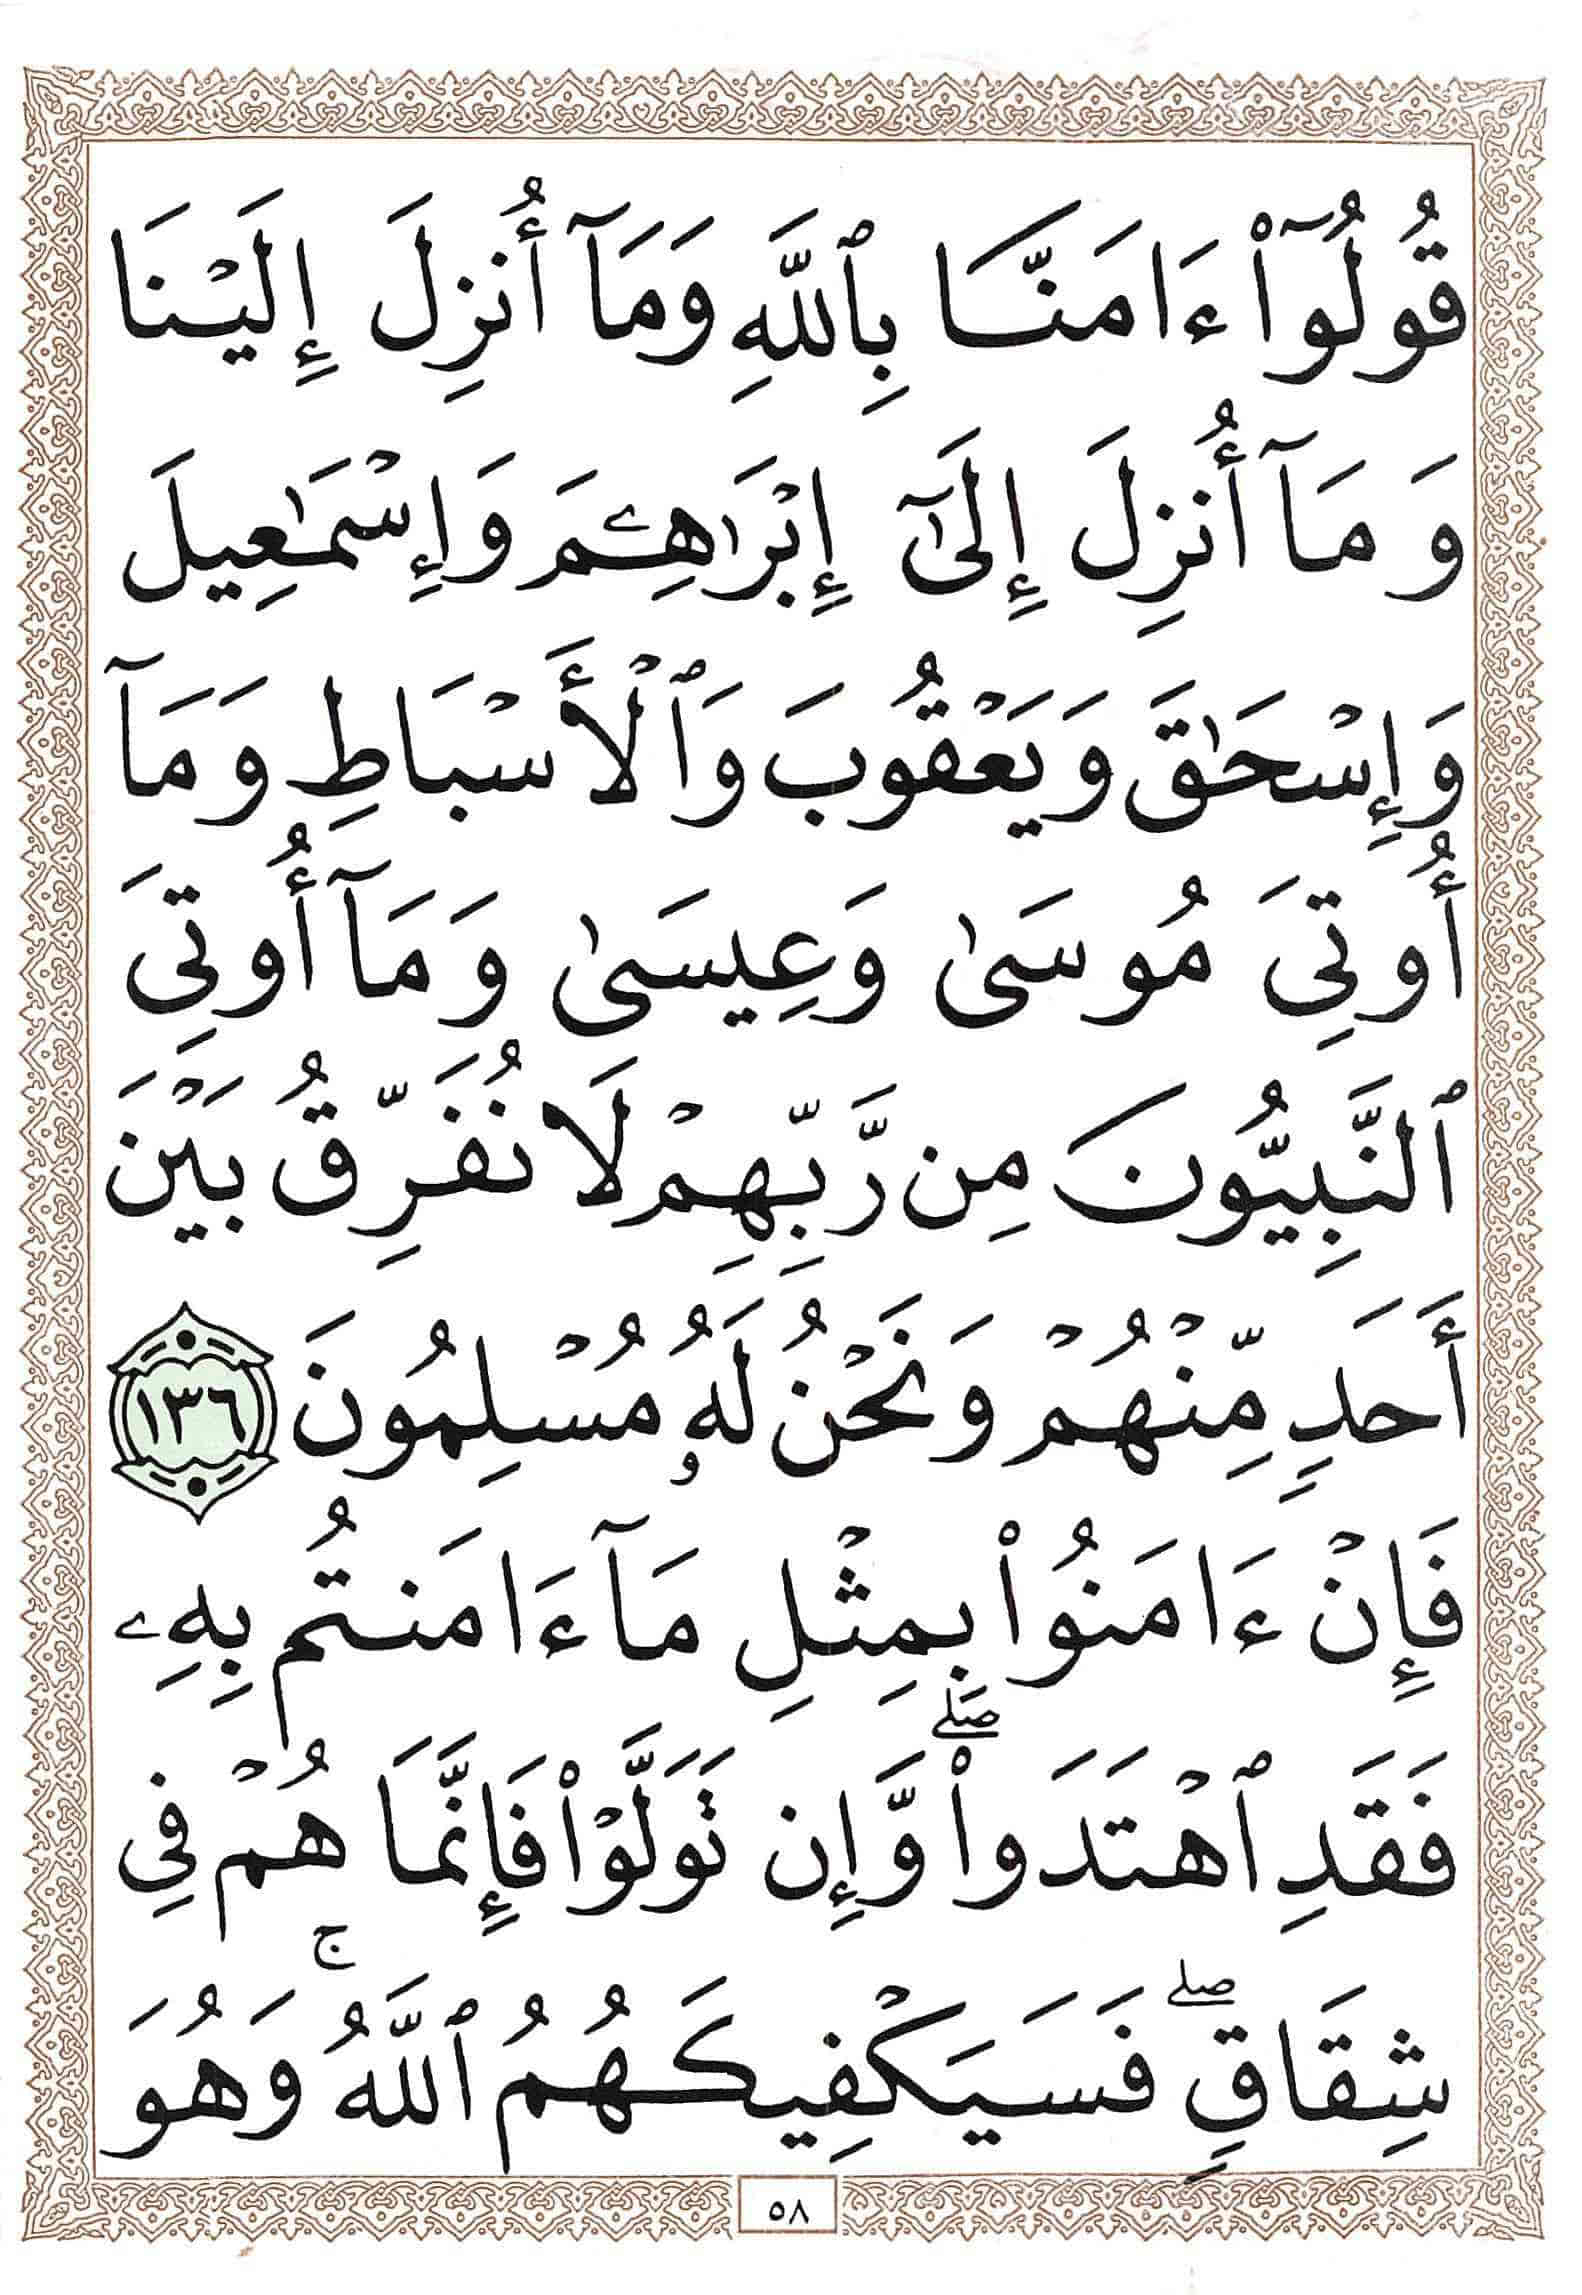 قُولُوٓا۟ ءَامَنَّا بِٱللَّهِ وَمَآ أُنزِلَ إِلَيْنَا
وَمَآ أُنزِلَ إِلَىٰٓ إِبْرَٰهِـۧمَ وَإِسْمَـٰعِيلَ
وَإِسْحَـٰقَ وَيَعْقُوبَ وَٱلْأَسْبَاطِ وَمَآ
أُوتِىَ مُوسَىٰ وَعِيسَىٰ وَمَآ أُوتِىَ
ٱلنَّبِيُّونَ مِن رَّبِّهِمْ لَا نُفَرِّقُ بَيْنَ
أَحَدٍ مِّنْهُمْ وَنَحْنُ لَهُۥ مُسْلِمُونَ ١٣٦
فَإِنْ ءَامَنُوا۟ بِمِثْلِ مَآ ءَامَنتُم بِهِۦ
فَقَدِ ٱهْتَدَوا۟ ۖ وَّإِن تَوَلَّوْا۟ فَإِنَّمَا هُمْ فِى
شِقَاقٍ ۖ فَسَيَكْفِيكَهُمُ ٱللَّهُ ۚ وَهُوَ
٥٨